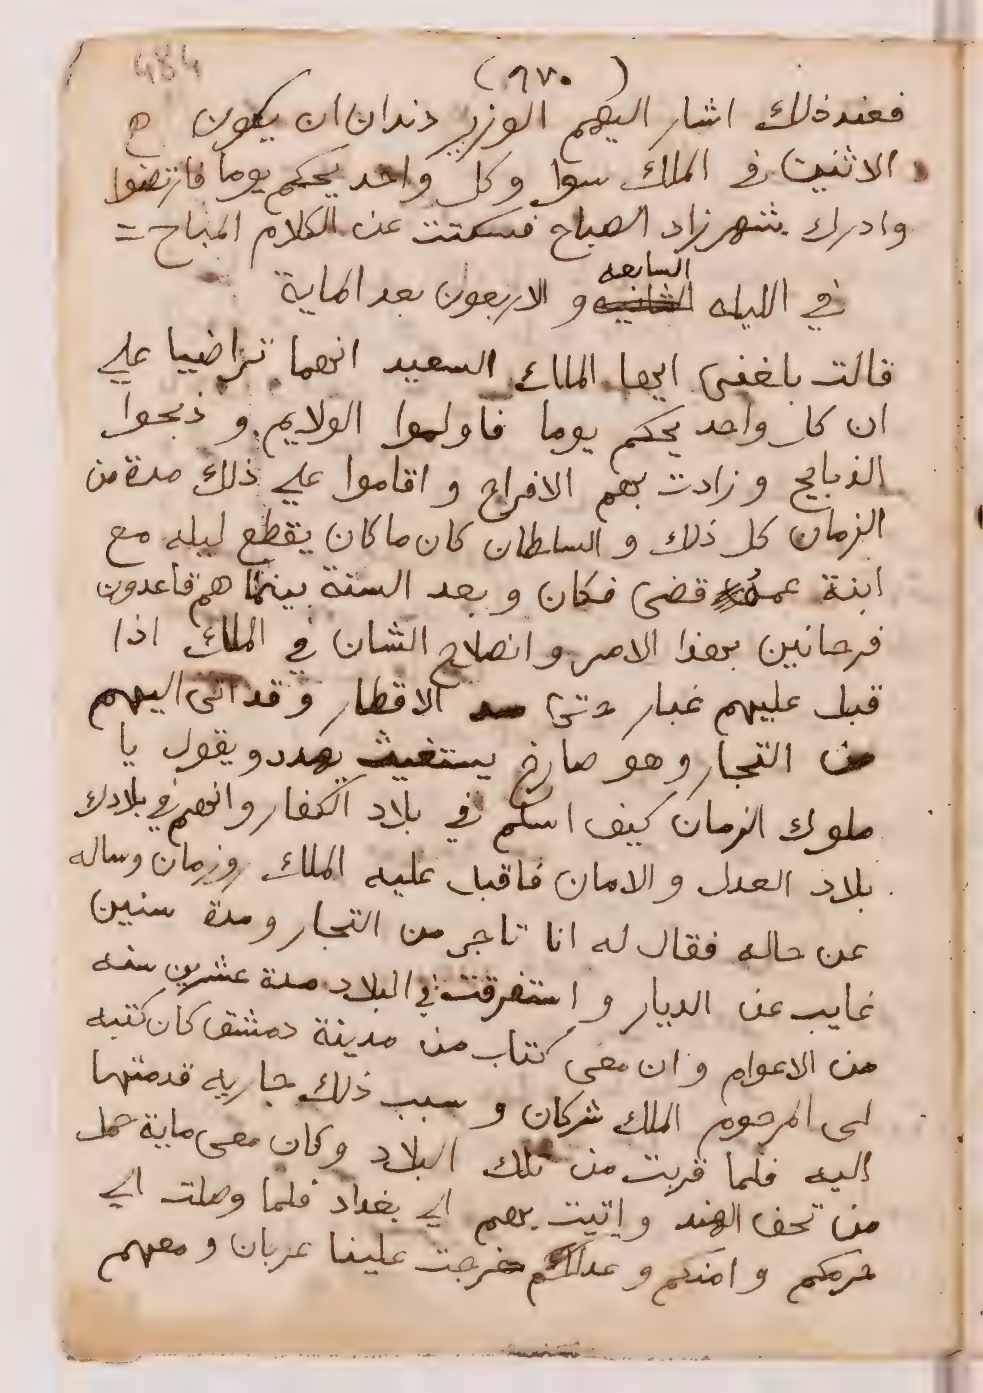 484
(٩٧٠)
فعند ذلك اشار اليهم الوزير دندان ان يكون
الاثنين في الملك سوا وكل واحد يحكم يوما فارتضوا
وادرك شهرزاد الصباح فسكتت عن الكلام المباح =
السابعه
في الليله الثانيه و الاربعون بعد الماية
قالت بلغني ايها الملك السعيد انهما تراضيا علي
ان كل واحد يحكم يوما فاولموا الولايم و ذبحوا
الذبايح و زادت بهم الافراح و اقاموا علي ذلك مدة من
الزمان كل ذلك و السلطان كان ماكان يقطع ليله مع
ابنة عمه قضى فكان و بعد السنة بينما هم قاعدون
فرحانين بهذا الامر و انصلاح الشان في الملك اذا
قبل عليهم غبار حتى سد الاقطار و قد اتى اليهم
من التجار وهو صارخ يستغيث و يقول يا
ملوك الزمان كيف اسلم في بلاد الكفار وانهم في بلادك
بلاد العدل و الامان فاقبل عليه الملك روزمان وساله
عن حاله فقال له انا تاجر من التجار و مدة سنين
غايب عن الديار و استغرقت في البلاد مدة عشرين سنه
من الاعوام و ان معي كتاب من مدينة دمشق كان كتبه
لى المرحوم الملك شركان و سبب ذلك جاريه قدمتها
اليه فلما قربت من تلك البلاد و كان معى ماية حمل
من تحف الهند و اتيت بهم الي بغداد فلما وصلت الي
حرمكم و امنكم و عدلكم خرجت علينا عربان و معهم